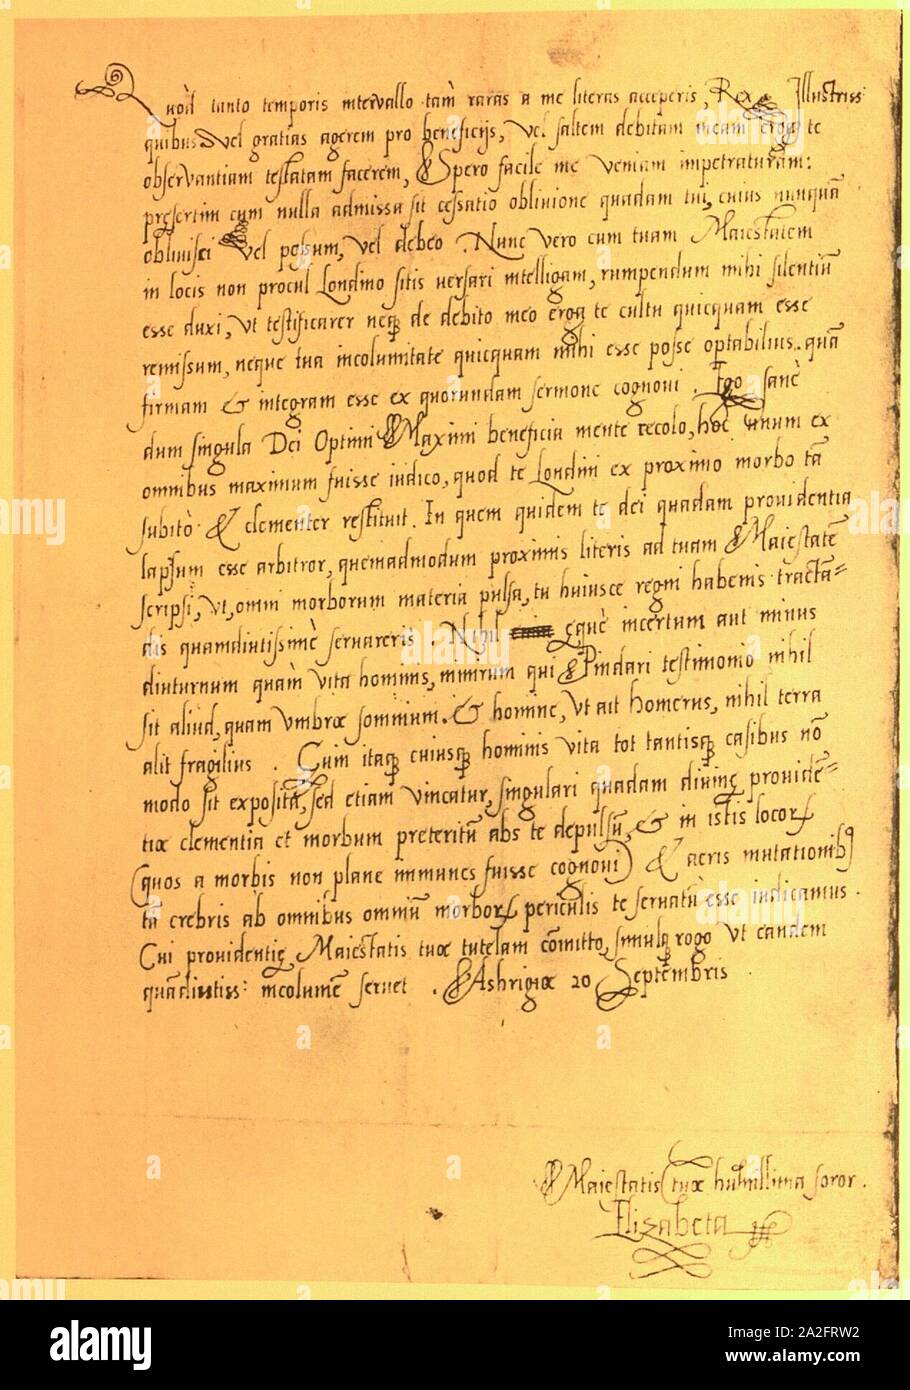 Quòd tanto temporis intervallo tam raras a me literas acceperis, Rex Illustriss:
quibus vel gratias agerem pro beneficijs, vel saltem debitam meam erga te
observantiam testatam facerem, Spero facile me veniam impetraturam:
presertim cum nulla admissa sit cessatio oblivione quadam tui, cuius nunquā
oblivisci vel possum, vel debeo. Nunc vero cum tuam Maiestatem
in locis non procul Londino sitis versari intelligam, rumpendum mihi silentiū
esse duxi, vt testificarer neq de debito meo erga te cultu quicquam esse
remissum, neque tua incolumitate quicquam mihi esse posse optabilius. quā
firmam & integram esse ex quorundam sermone cognovi. Ego sanè
dum singula Dei Optimi Maximi beneficia mente recolo, hoc unum ex
omnibus maximum fuisse iudico, quod te Londini ex proximo morbo tā
subitò & clementer restituit. In quem quidem te dei quadam prouidentia
lapsum esse arbitror, quemadmodum proximis literis ad tuam Maiestatē
scripsi, vt, omni morborum materia pulsa, tu huiusce regni habenis tractā=
dis quamdiutissimè servareris. Nihil equè incertum aut minus
diuturnum quàm vita hominis, nimirum qui Pindari testimonio nihil
sit aliud, quam vmbræ somnium. & homine, vt ait Homerus, nihil terra
alit fragilius. Cum itaq cuiusq hominis vita tot tantisq casibus nō
modo sit exposita, sed etiam vincatur, singulari quadam divinę prouidē=
tiæ clementia et morbum preteritū abs te depulsū, & in istis locor
(quos a morbis non plane immunes fuisse cognoui) & aeris mutationib
tā crebris ab omnibus omniū morbor periculis te seruatū esse iudicamus.
Cui prouidentię Maiestatis tuæ tutelam cōmitto, simulq rogo vt eandem
quādiutiss: incolumē seruet. Ashrigiæ 20 Septembris.
Maiestatis tuæ humillima soror.
Elizabeta
alamy
Image ID: 2A2FRW2
www.alamy.com